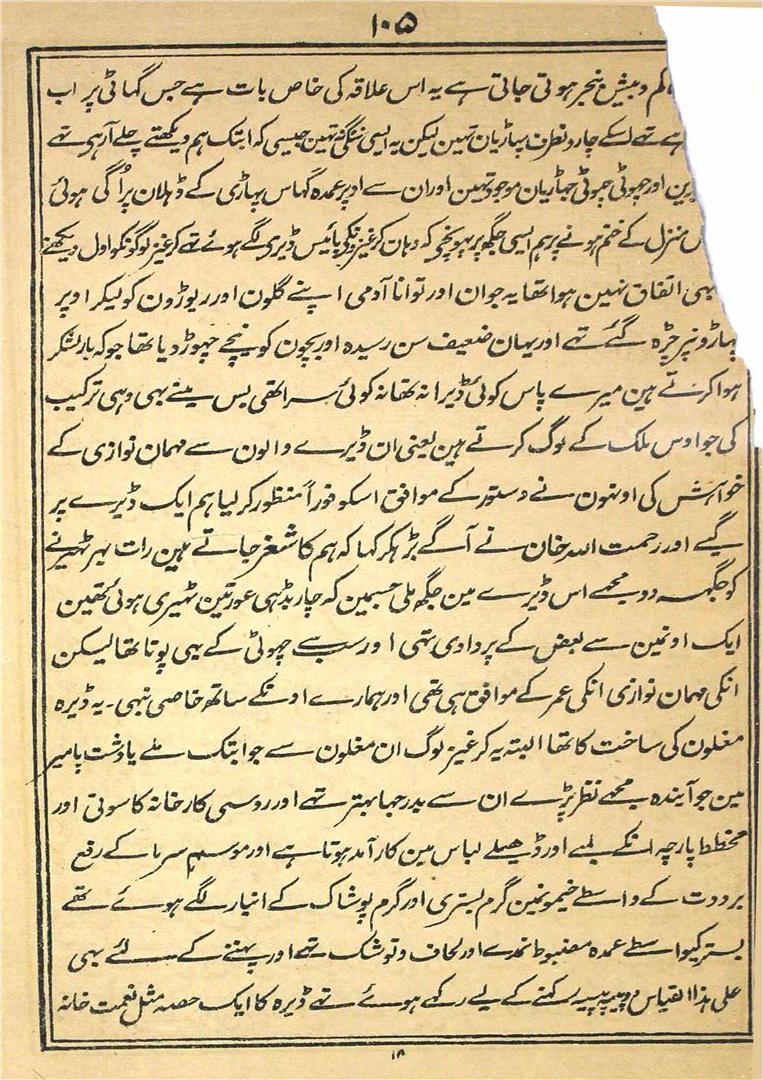 ۱۰۵
کم و بیش بنجر ہوتی جاتی ہے یہ اس علاقہ کی خاص بات ہے جس گہاٹی پر اب
ہے تہے اسکے چارونطرف پہاڑیان تہین لیکن یہ ایسی ننگی نہ تہین جیسی کہ ابتک ہم دیکھتے چلے آرہی تہے
اور چہوٹی چہوٹی جہاڑیان موجود تہین اور ان سے اوپر عمدہ گہاس پہاڑی کے ڈہلان پر اُگی ہوئی
منزل کے ختم ہونے پر ہم ایسی جگہ پر پہونچی کہ وہان کرغیزونکی بائیس ڈیری لگے ہوئے تہے کرغیز لوگونکو اول دیکھنے
بہی اتفاق نہین ہوا تھا یہ جوان اور توانا آدمی اپنے گلون اور ریوڑون کو لیکر اوپر
پہاڑونپر چڑہ گئے تہے اور یہان ضعیف سن رسیدہ اور بچون کو نیچے چہوڑ دیا تھا جو کہ بار لشکر
ہوا کرتے ہین میرے پاس کوئی ڈیرا نہ تھا نہ کوئی سرا تھی بس مینے بہی وہی ترکیب
کی جو اوس ملک کے لوگ کرتے ہین یعنی ان ڈیرے والون سے مہمان نوازی کے
خواہش کی اونہون نے دستور کے موافق اسکو فوراً منظور کر لیا ہم ایک ڈیرے پر
گیے اور رحمت اللہ خان نے آگے بڑہکر کہا کہ ہم کاشغر جاتے ہین رات بہر ٹہیرنے
کو جگہہ دو مجھے اس ڈیرے مین جگہ ملی جسمین کہ چار بڈہی عورتین ٹہیری ہوئی تھین
ایک اونمین سے بعض کے پردادی تہی اور سب سے چہوٹی کے بہی پوتا تھا لیکن
انکی مہمان نوازی انکی عمر کے موافق ہی تھی اور ہمارے اونکے ساتھ خاصی نبہی۔ یہ ڈیرہ
مغلون کی ساخت کا تھا البتہ یہ کرغیز لوگ ان مغلون سے جو ابتک ملے یا دشت پامیر
مین جو آیندہ مجھے نظر پڑے ان سے بدرجہا بہتر تہے اور روسی کارخانہ کا سوتی اور
مخطط پارچہ انکے لمبے اور ڈھیلے لباس مین کار آمد ہوتا ہے اور موسم سرما کے رفع
برودت کے واسطے خیمونمین گرم بستری اور گرم پوشاک کے انبار لگے ہوئے تھے
بستر کیواسطے عمدہ مضبوط نمدے اور لحاف و توشک تہے اور پہننے کے لئے بہی
علی ہذا القیاس رکھنے کے لیے رکہے ہوئے تہے ڈیرہ کا ایک حصہ مثل نعمت خانہ
۱۸